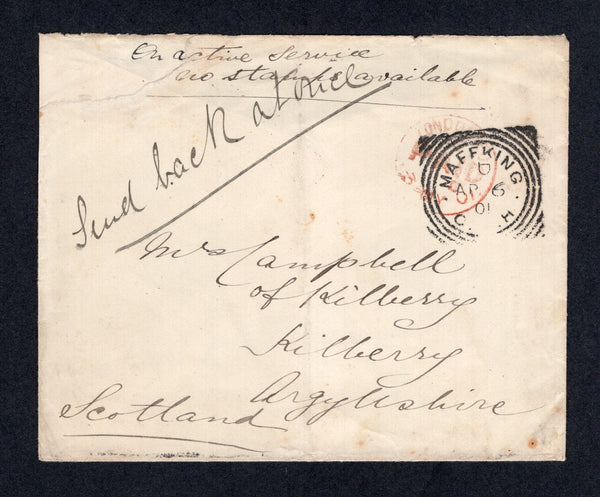 On active Service
no stamps available
Send back at once
LONDON
MAFFKING
D
AP 6
01
C H
Mrs Campbell
of Kilberry
Kilberry
Argyleshire
Scotland